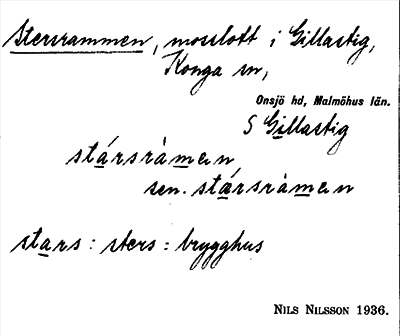 Stersrammen, mosslott i Gillastig,
Konga sn,
Onsjö hd, Malmöhus län.
S Gillastig
stársràmen
sen. stársràmen
stars : sters : brygghus
NILS NILSSON 1936.